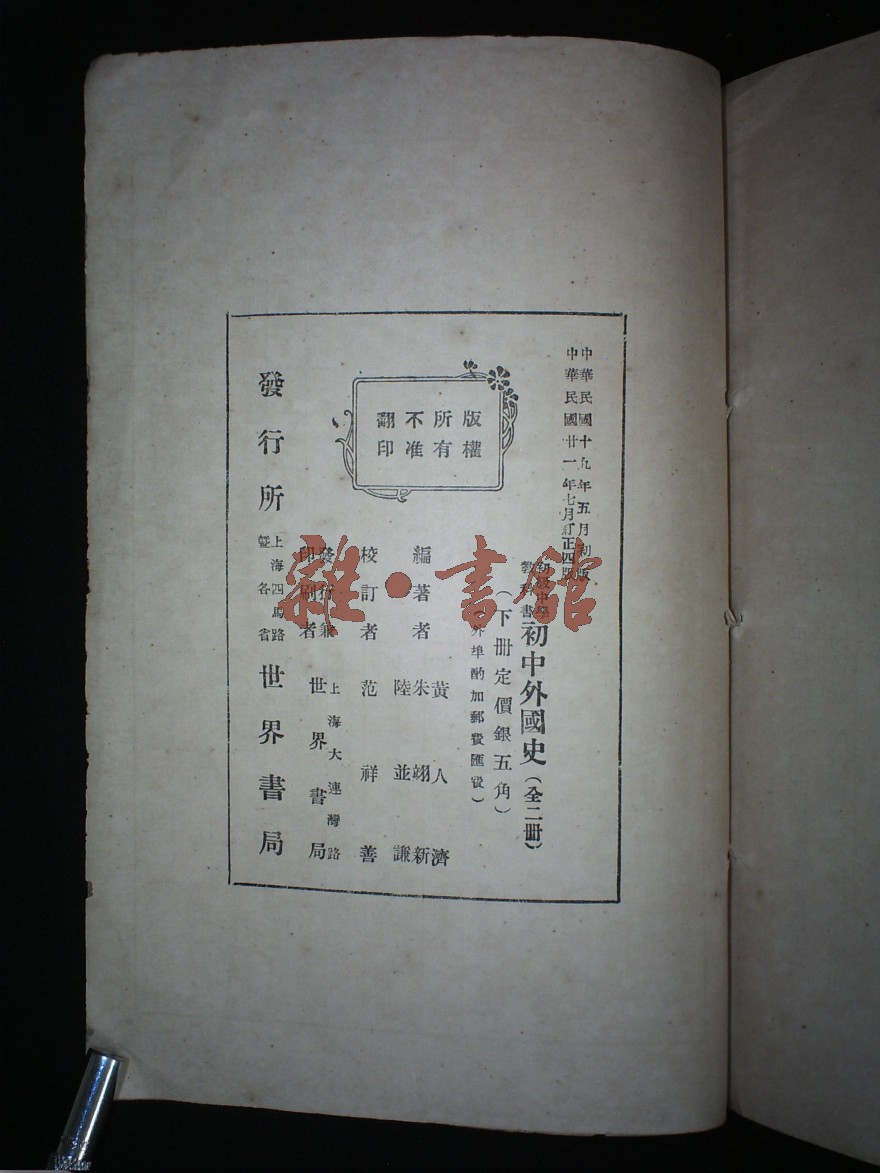 中華民國十九年五月初版
中華民國廿一年七月訂正四版
初級中學
教科書
初中外國史(全二冊)
(下冊定價銀五角)
(外埠酌加郵費匯費)
版權
所有
不准
翻印
編著者
黃人濟
朱翊新
陸並謙
校訂者 范祥善
發行兼
印刷者
上海大連灣路
世界書局
發行所
上海四馬路
暨各省
世界書局
雜·書館